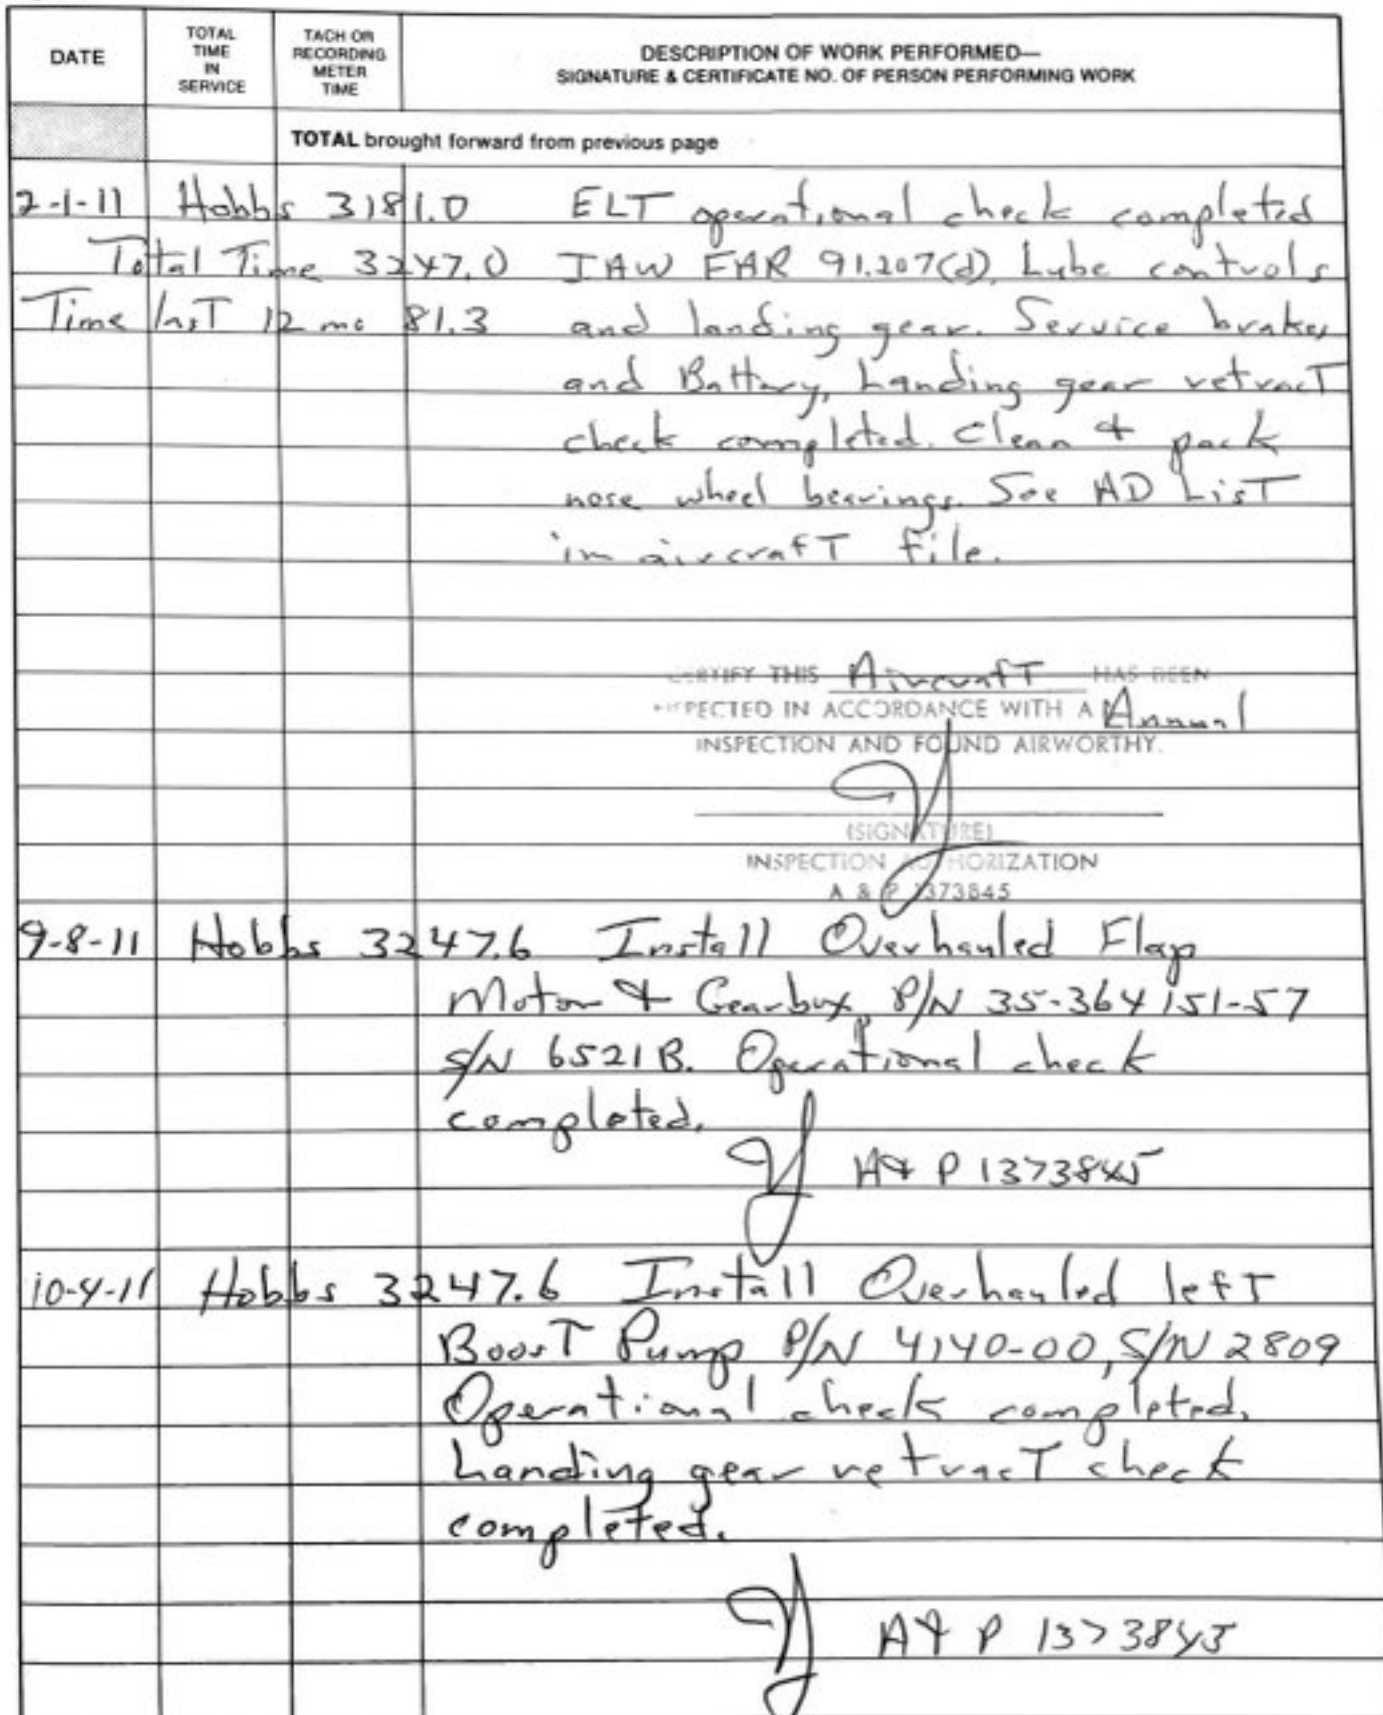 DATE
TOTAL TIME IN SERVICE
TACH OR RECORDING METER TIME
DESCRIPTION OF WORK PERFORMED—
SIGNATURE & CERTIFICATE NO. OF PERSON PERFORMING WORK
TOTAL brought forward from previous page
2-1-11 Hobbs 3181.0 ELT operational check completed
Total Time 3247.0 IAW FAR 91.207(d). Lube controls
Time last 12 mo 81.3 and landing gear. Service brakes
and Battery, Landing gear retract
check completed. Clean & pack
nose wheel bearings. See AD List
in aircraft file.
CERTIFY THIS Aircraft HAS BEEN
INSPECTED IN ACCORDANCE WITH A Annual
INSPECTION AND FOUND AIRWORTHY.
(SIGNATURE)
INSPECTION AUTHORIZATION
A & P 1373845
9-8-11 Hobbs 3247.6 Install Overhauled Flap
Motor & Gearbox P/N 35-364151-57
S/N 6521B. Operational check
completed.
A & P 1373845
10-4-11 Hobbs 3247.6 Install Overhauled left
Boost Pump P/N 4140-00, S/N 2809
Operational check completed.
Landing gear retract check
completed.
A & P 1373845